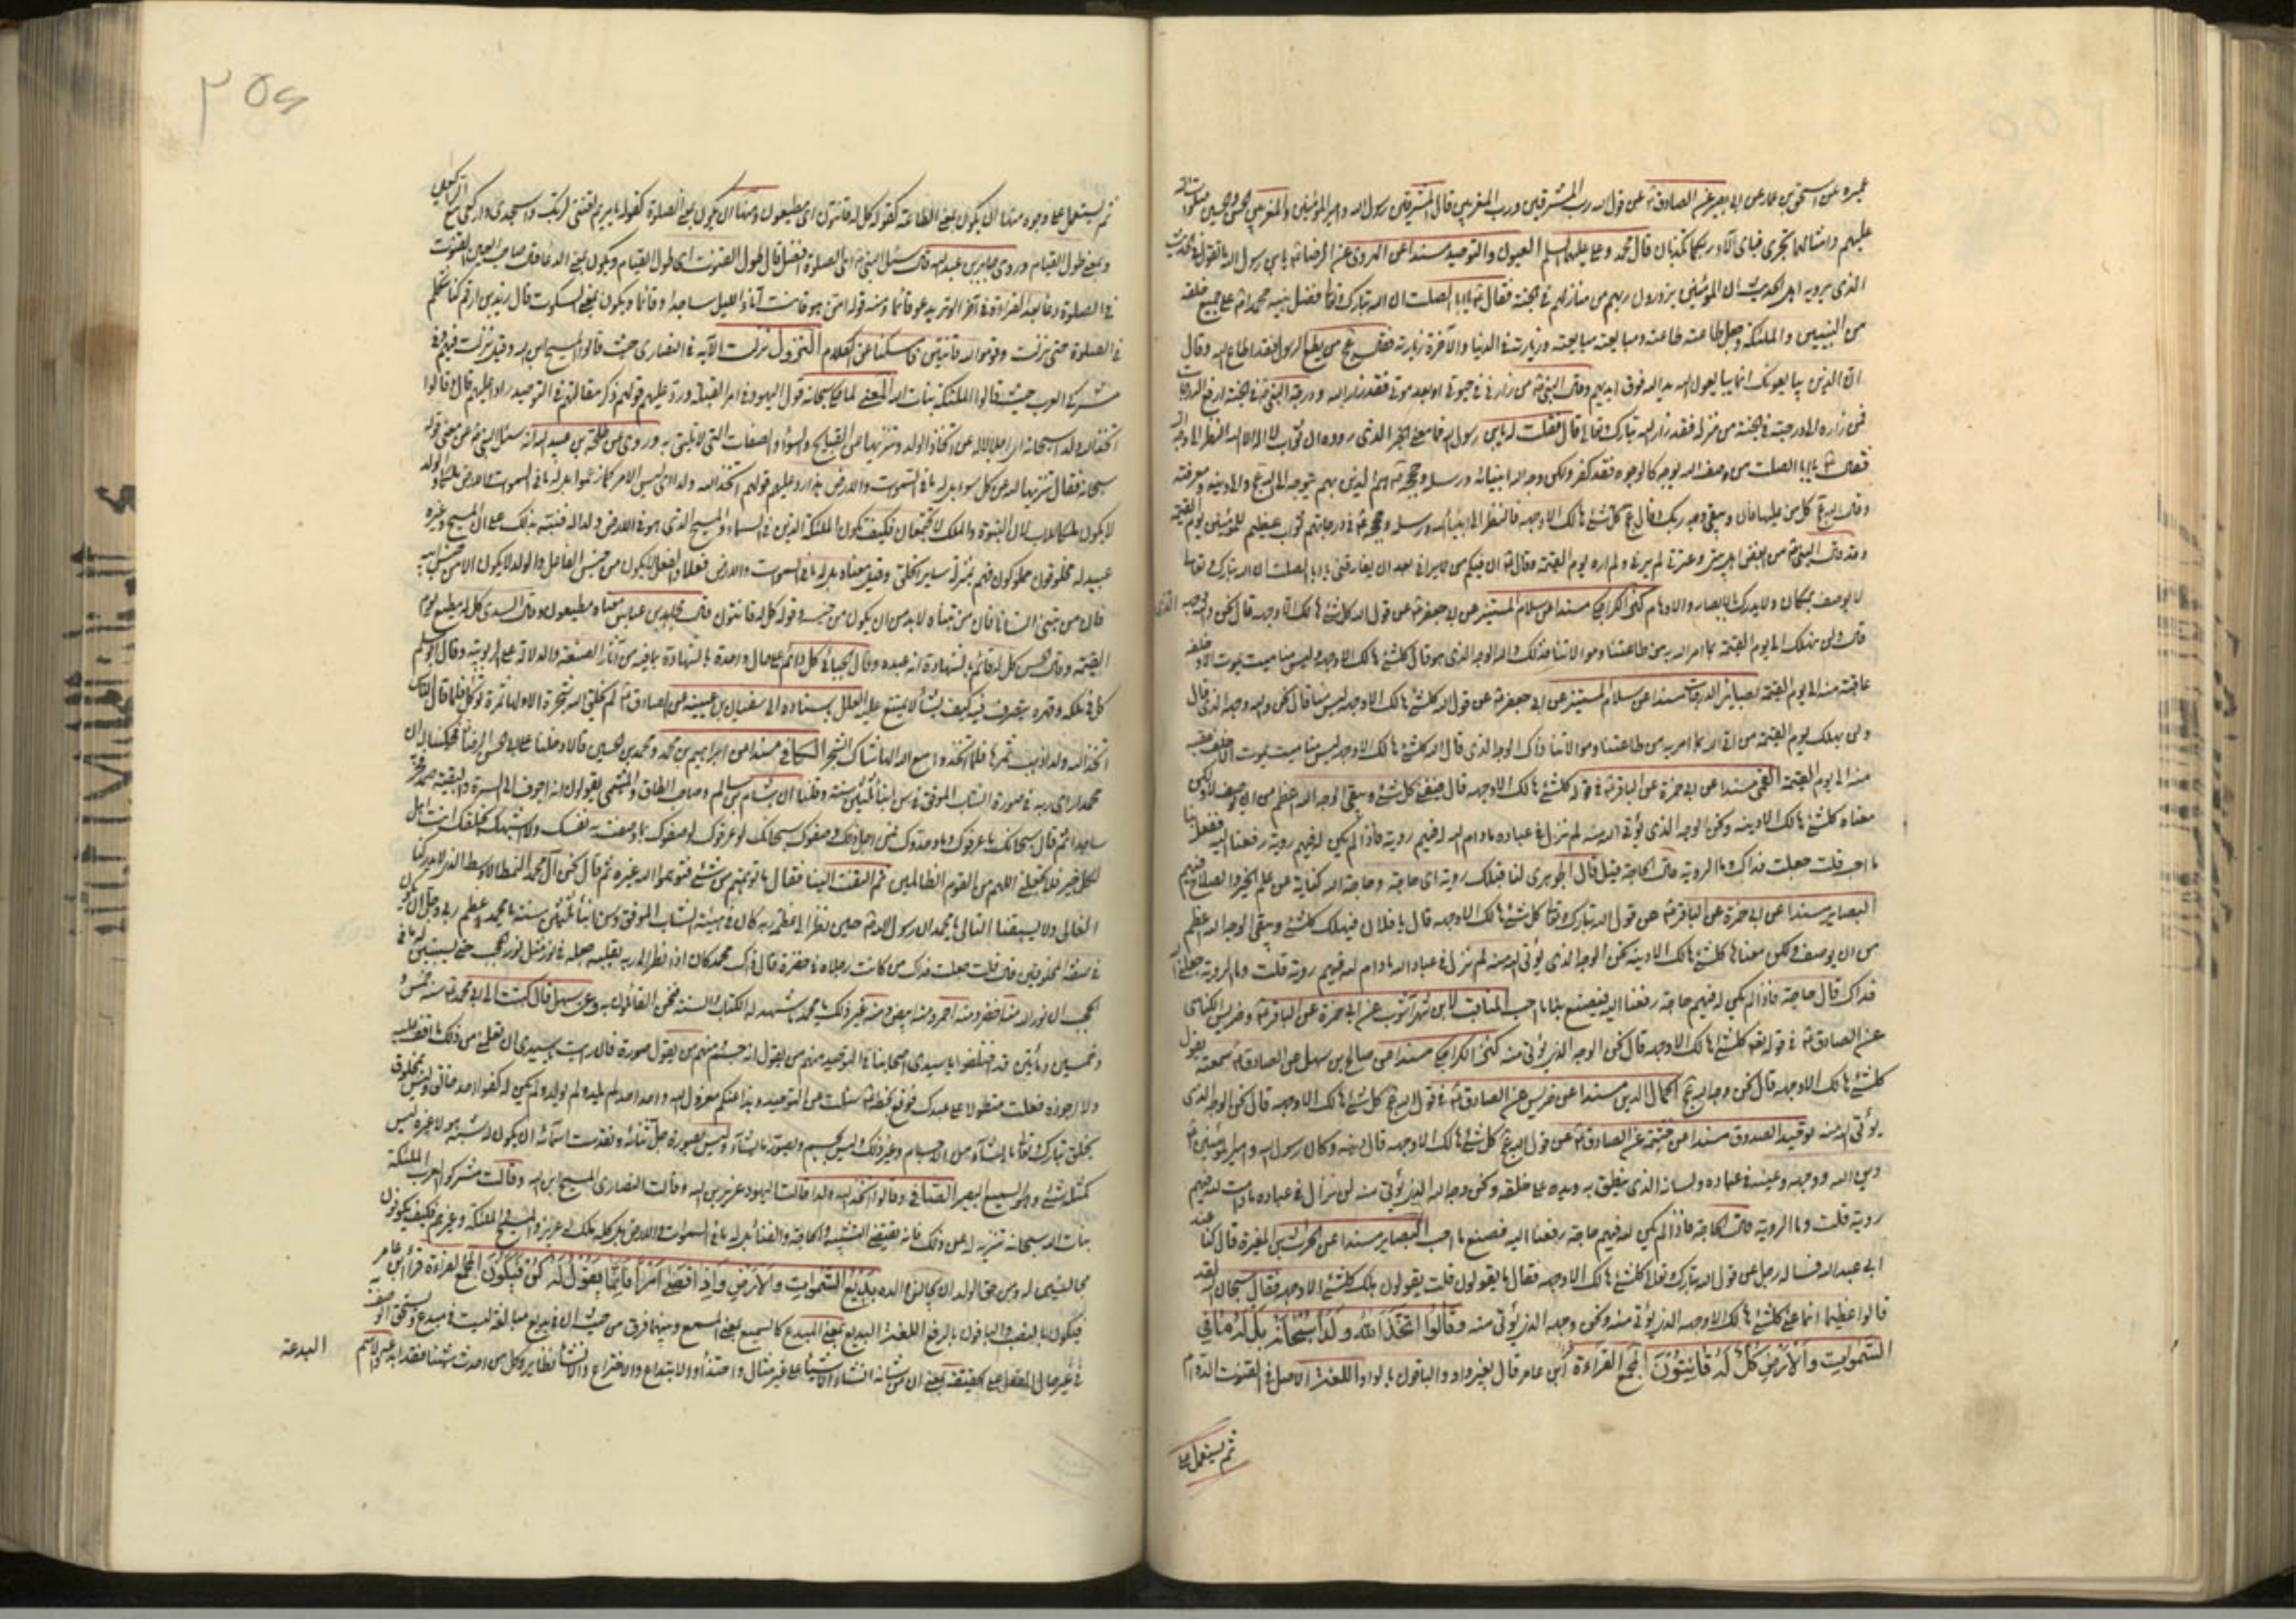 عن قول الله رب المشرقين ورب المغربين قال المشرقين رسول الله وامير المؤمنين والمغربين الحسن والحسين
عليهم وامثالهما تجرى فباى آلاء ربكما تكذبان قال محمد وعلى عليهما السلم العيون والتوحيد مسندا عن الهروى عن الرضا
الذى يرويه اهل الحديث ان المؤمنين يزورون ربهم من منازلهم فى الجنة فقال يا ابا الصلت ان الله تبارك وتعالى فضل نبيه محمدا على جميع خلقه
من النبيين والملئكة وجعل طاعته طاعته ومبايعته مبايعته وزيارته فى الدنيا والآخرة زيارته فقال عج من يطع الرسول فقد اطاع الله وقال
ان الذين يبايعونك انما يبايعون الله يد الله فوق ايديهم وقال النبى من زارنى فى حيوتى او بعد موتى فقد زار الله ودرجة النبى فى الجنة ارفع الدرجات
فمن زاره الى درجته فى الجنة من منزله فقد زار الله تبارك وتعالى قال فقلت له يابن رسول الله فما معنى الخبر الذى رووه ان ثواب لا اله الا الله النظر الى وجه الله
فقال يا ابا الصلت من وصف الله بوجه كالوجوه فقد كفر ولكن وجه الله انبيائه ورسله وحججه هم الذين بهم يتوجه الى الله عج والى دينه ومعرفته
وقال الله عج كل من عليها فان ويبقى وجه ربك وقال عج كل شئ هالك الا وجهه فالنظر الى انبياء الله ورسله وحججه فى درجاتهم ثواب عظيم للمؤمنين يوم القيمة
وقد قال النبى من ابغض اهل بيتى وعترتى لم يرنى ولم اره يوم القيمة وقال ان فيكم من لا يرانى بعد ان يفارقنى يا ابا الصلت ان الله تبارك وتعالى
لا يوصف بمكان ولا يدرك بالابصار والاوهام كنز الكراجكى مسندا عن سلام المستنير عن ابى جعفر عن قول الله كل شئ هالك الا وجهه قال نحن والله وجهه الذى
قال ولن يهلك الى يوم القيمة بما امر الله به من طاعتنا وموالاتنا فذلك والله الوجه الذى هو قال كل شئ هالك الا وجهه وليس منا ميت يموت الا وخلفه
عاقبة منه الى يوم القيمة بصائر الدرجات مسندا عن سلام المستنير عن ابى جعفر عن قول الله كل شئ هالك الا وجهه
منه الى يوم القيمة القمى مسندا عن ابى حمزة عن الباقر فى قوله كل شئ هالك الا وجهه قال فيفنى كل شئ ويبقى الوجه الله اعظم من ان يوصف لا ولكن
معناه كل شئ هالك الا دينه ونحن الوجه الذى يؤتى الله منه لم نزل فى عباده ما دام الله له فيهم روية فاذا لم يكن له فيهم روية رفعنا اليه ففعل بنا
ما احب قلت جعلت فداك وما الروية قال الحاجة
البصاير مسندا عن ابى حمزة عن الباقر عن قول الله تبارك وتعالى كل شئ هالك الا وجهه قال يا فلان فيهلك كل شئ ويبقى الوجه الله اعظم
من ان يوصف ولكن معناها كل شئ هالك الا دينه نحن الوجه الذى يؤتى الله منه لم نزل فى عباد الله ما دام لله فيهم روية قلت وما الروية جعلنى الله
فداك قال حاجة فاذا لم يكن له فيهم حاجة رفعنا اليه فيصنع بنا ما احب المناقب لابن شهرآشوب عن ابى حمزة عن الباقر وضريس الكناسى
عن الصادق فى قوله تعالى كل شئ هالك الا وجهه قال نحن الوجه الذى يؤتى منه كنز الكراجكى مسندا عن صالح بن سهل عن الصادق سمعته يقول
كل شئ هالك الا وجهه قال نحن وجه الله عج اكمال الدين مسندا عن ضريس عن الصادق فى قول الله عج كل شئ هالك الا وجهه قال نحن الوجه الذى
يؤتى الله منه توحيد الصدوق مسندا عن خيثمة عن الصادق عن قول الله عج كل شئ هالك الا وجهه قال دينه وكان رسول الله وامير المؤمنين
دين الله ووجهه وعينه فى عباده ولسانه الذى ينطق به ويده على خلقه ونحن وجه الله الذى يؤتى منه لن نزال فى عباده ما دامت لله فيهم
روية قلت وما الروية قال الحاجة فاذا لم يكن له فيهم حاجة رفعنا اليه فصنع ما احب البصاير مسندا عن الحرث بن المغيرة قال كنا عند
ابى عبد الله فساله رجل عن قول الله تبارك وتعالى كل شئ هالك الا وجهه فقال ما يقولون قلت يقولون يهلك كل شئ الا وجهه فقال سبحان الله لقد
قالوا عظيما انما عنى كل شئ هالك الا وجهه الذى يؤتى منه ونحن وجهه الذى يؤتى منه وَقَالُوا اتَّخَذَ اللهُ وَلَدًا سُبْحَانَهُ بَلْ لَهُ مَا فِى
السَّمٰوَاتِ وَالْاَرْضِ كُلٌّ لَهُ قَانِتُونَ المجمع القراءة ابن عامر قال بغير واو والباقون بالواو اللغة الاصل فى القنوت الدوام
ثم يستعمل على
٢٥٤
ثم يستعمل على وجوه منها ان يكون بمعنى الطاعة كقوله كل له قانتون اى مطيعون ومنها ان يكون بمعنى الصلوة كقوله يا مريم اقنتى لربك واسجدى واركعى مع الراكعين
وبمعنى طول القيام وروى جابر بن عبد الله قال سئل النبى اى الصلوة افضل قال طول القنوت اى طول القيام ويكون بمعنى الدعاء قال صاحب العين القنوت
فى الصلوة دعاء بعد القراءة فى آخر الوتر يدعو قائما ومنه قوله امن هو قانت آناء الليل ساجدا وقائما ويكون بمعنى السكوت قال زيد بن ارقم كنا نتكلم
فى الصلوة حتى نزلت وقوموا لله قانتين فامسكنا عن الكلام النزول نزلت الآية فى النصارى حيث قالوا المسيح ابن الله وقيل نزلت فيهم وفى
مشركى العرب حيث قالوا الملئكة بنات الله المعنى لما حكى سبحانه قول اليهود فى امر القبلة ورد عليهم قولهم ذكر مقالتهم فى التوحيد رادا عليهم قال وقالوا
اتخذ الله ولدا سبحانه اى اجلالا له عن اتخاذ الولد وتنزيها عن القبايح والسوء والصفات التى لا تليق به وروى عن طلحة بن عبيد الله انه سئل النبى عن معنى قوله
سبحانه فقال تنزيها لله عن كل سوء بل له ما فى السموات والارض هذا رد عليهم قولهم اتخذ الله ولدا اى ليس الامر كما زعموا بل له ما فى السموات والارض ملكا والولد
لا يكون ملكا للاب لان البنوة والملك لا يجتمعان فكيف يكون الملئكة الذين فى السماء والمسيح الذى هو فى الارض ولدا له فنبه بذلك على ان المسيح وغيره
عبيد له مخلوقون مملوكون فهم بمنزلة ساير الخلق وقيل معناه بل له ما فى السموات والارض فعلا والفعل لا يكون من جنس الفاعل والولد لا يكون الا من جنس ابيه
فان من تبنى انسانا فان من تبناه لا بد من ان يكون من جنسه وقوله كل له قانتون قال مجاهد عن ابن عباس معناه مطيعون وقال السدى كل له مطيع يوم
القيمة وقال الحسن كل له قائم بالشهادة انه عبده وقال الجبائى كل دائم على حال واحدة بالشهادة بما فيه من آثار الصنعة والدلالة على الربوبية وقال ابو مسلم
كل فى ملكه وقهره يتصرف فيه كيف يشاء لا يمتنع عليه العلل باسناده الى سفيان بن عيينه عن الصادق لم يخلق الله شجرة الا ولها ثمرة تؤكل فلما قال الناس
اتخذ الله ولدا اذهب ثمرها فلما اتخذوا مع الله الها شاك الشجر الكافى مسندا عن ابراهيم بن محمد ومحمد بن الحسين قالا دخلنا على ابى الحسن الرضا فحكينا له ان
محمدا راى ربه فى صورة الشاب الموفق فى سن ابناء ثلثين سنة وقلنا ان هشام بن سالم وصاحب الطاق والميثمى يقولون انه اجوف الى السرة والبقية صمد فخر
ساجدا ثم قال سبحانك ما عرفوك وما وحدوك فمن اجل ذلك وصفوك سبحانك لو عرفوك لوصفوك بما وصفت به نفسك ولا اشبهك بخلقك انت اهل
لكل خير فلا تجعلنى اللهم من القوم الظالمين ثم التفت الينا فقال ما توهمتم من شئ فتوهموا الله غيره ثم قال نحن آل محمد النمط الاوسط الذى لا يدركنا
الغالى ولا يسبقنا التالى يا محمد ان رسول الله حين نظر الى عظمة ربه كان فى هيئة الشاب الموفق وسن ابناء ثلثين سنة يا محمد عظم ربى وجل ان يكون
فى صفة المخلوقين قال قلت جعلت فداك من كانت رجلاه فى خضرة قال ذاك محمد كان اذا نظر الى ربه بقلبه جعله فى نور مثل نور الحجب حتى يستبين له ما فى
الحجب ان نور الله منه اخضر ومنه احمر ومنه ابيض ومنه غير ذلك يا محمد ما شهد له الكتاب والسنة فنحن القائلون به وعن سهل قال كتبت الى ابى محمد سنة خمس و
خمسين ومأتين قد اختلف يا سيدى اصحابنا فى التوحيد منهم من يقول انه جسم ومنهم من يقول صورة فان رايت يا سيدى ان تعلمنى من ذلك ما اقف عليه
ولا اجوزه فعلت متطولا على عبدك فوقع بخطه سئلت عن التوحيد وهذا عنكم معزول الله واحد احد لم يلد ولم يولد ولم يكن له كفوا احد خالق وليس بمخلوق
يخلق تبارك وتعالى ما يشاء من الاجسام وغير ذلك وليس بجسم ويصور ما يشاء وليس بصورة جل ثنائه وتقدست اسمائه ان يكون له شبه هو لا غيره ليس
كمثله شئ وهو السميع البصير الصافى وقالوا اتخذ الله ولدا قالت اليهود عزير بن الله وقالت النصارى المسيح ابن الله وقالت مشركوا العرب الملئكة
بنات الله سبحانه تنزيه له عن ذلك فانه يقتضى التشبيه والحاجة والفناء بل له ما فى السموات والارض بل كله ملك له عزير والمسيح والملئكة وغيرهم فكيف يكونون
مجانسين له ومن حق الولد ان يجانس والده بَدِيعُ السَّمٰوَاتِ وَالْاَرْضِ وَاِذَا قَضٰى اَمْرًا فَاِنَّمَا يَقُولُ لَهُ كُنْ فَيَكُونُ المجمع القراءة قرأ ابن عامر
فيكون بالنصب والباقون بالرفع اللغة البديع بمعنى المبدع كالسميع بمعنى المسمع وبينهما فرق من حيث ان فى بديع مبالغة ليست فى مبدع ويستحق الوصف به
فى غير حال الفعل على الحقيقة بمعنى ان من شانه انشاء الاشياء على غير مثال واحتذاء والابتداع والاختراع والانشاء نظاير وكل من احدث شيئا فقد ابدعه والاسم
البدعة